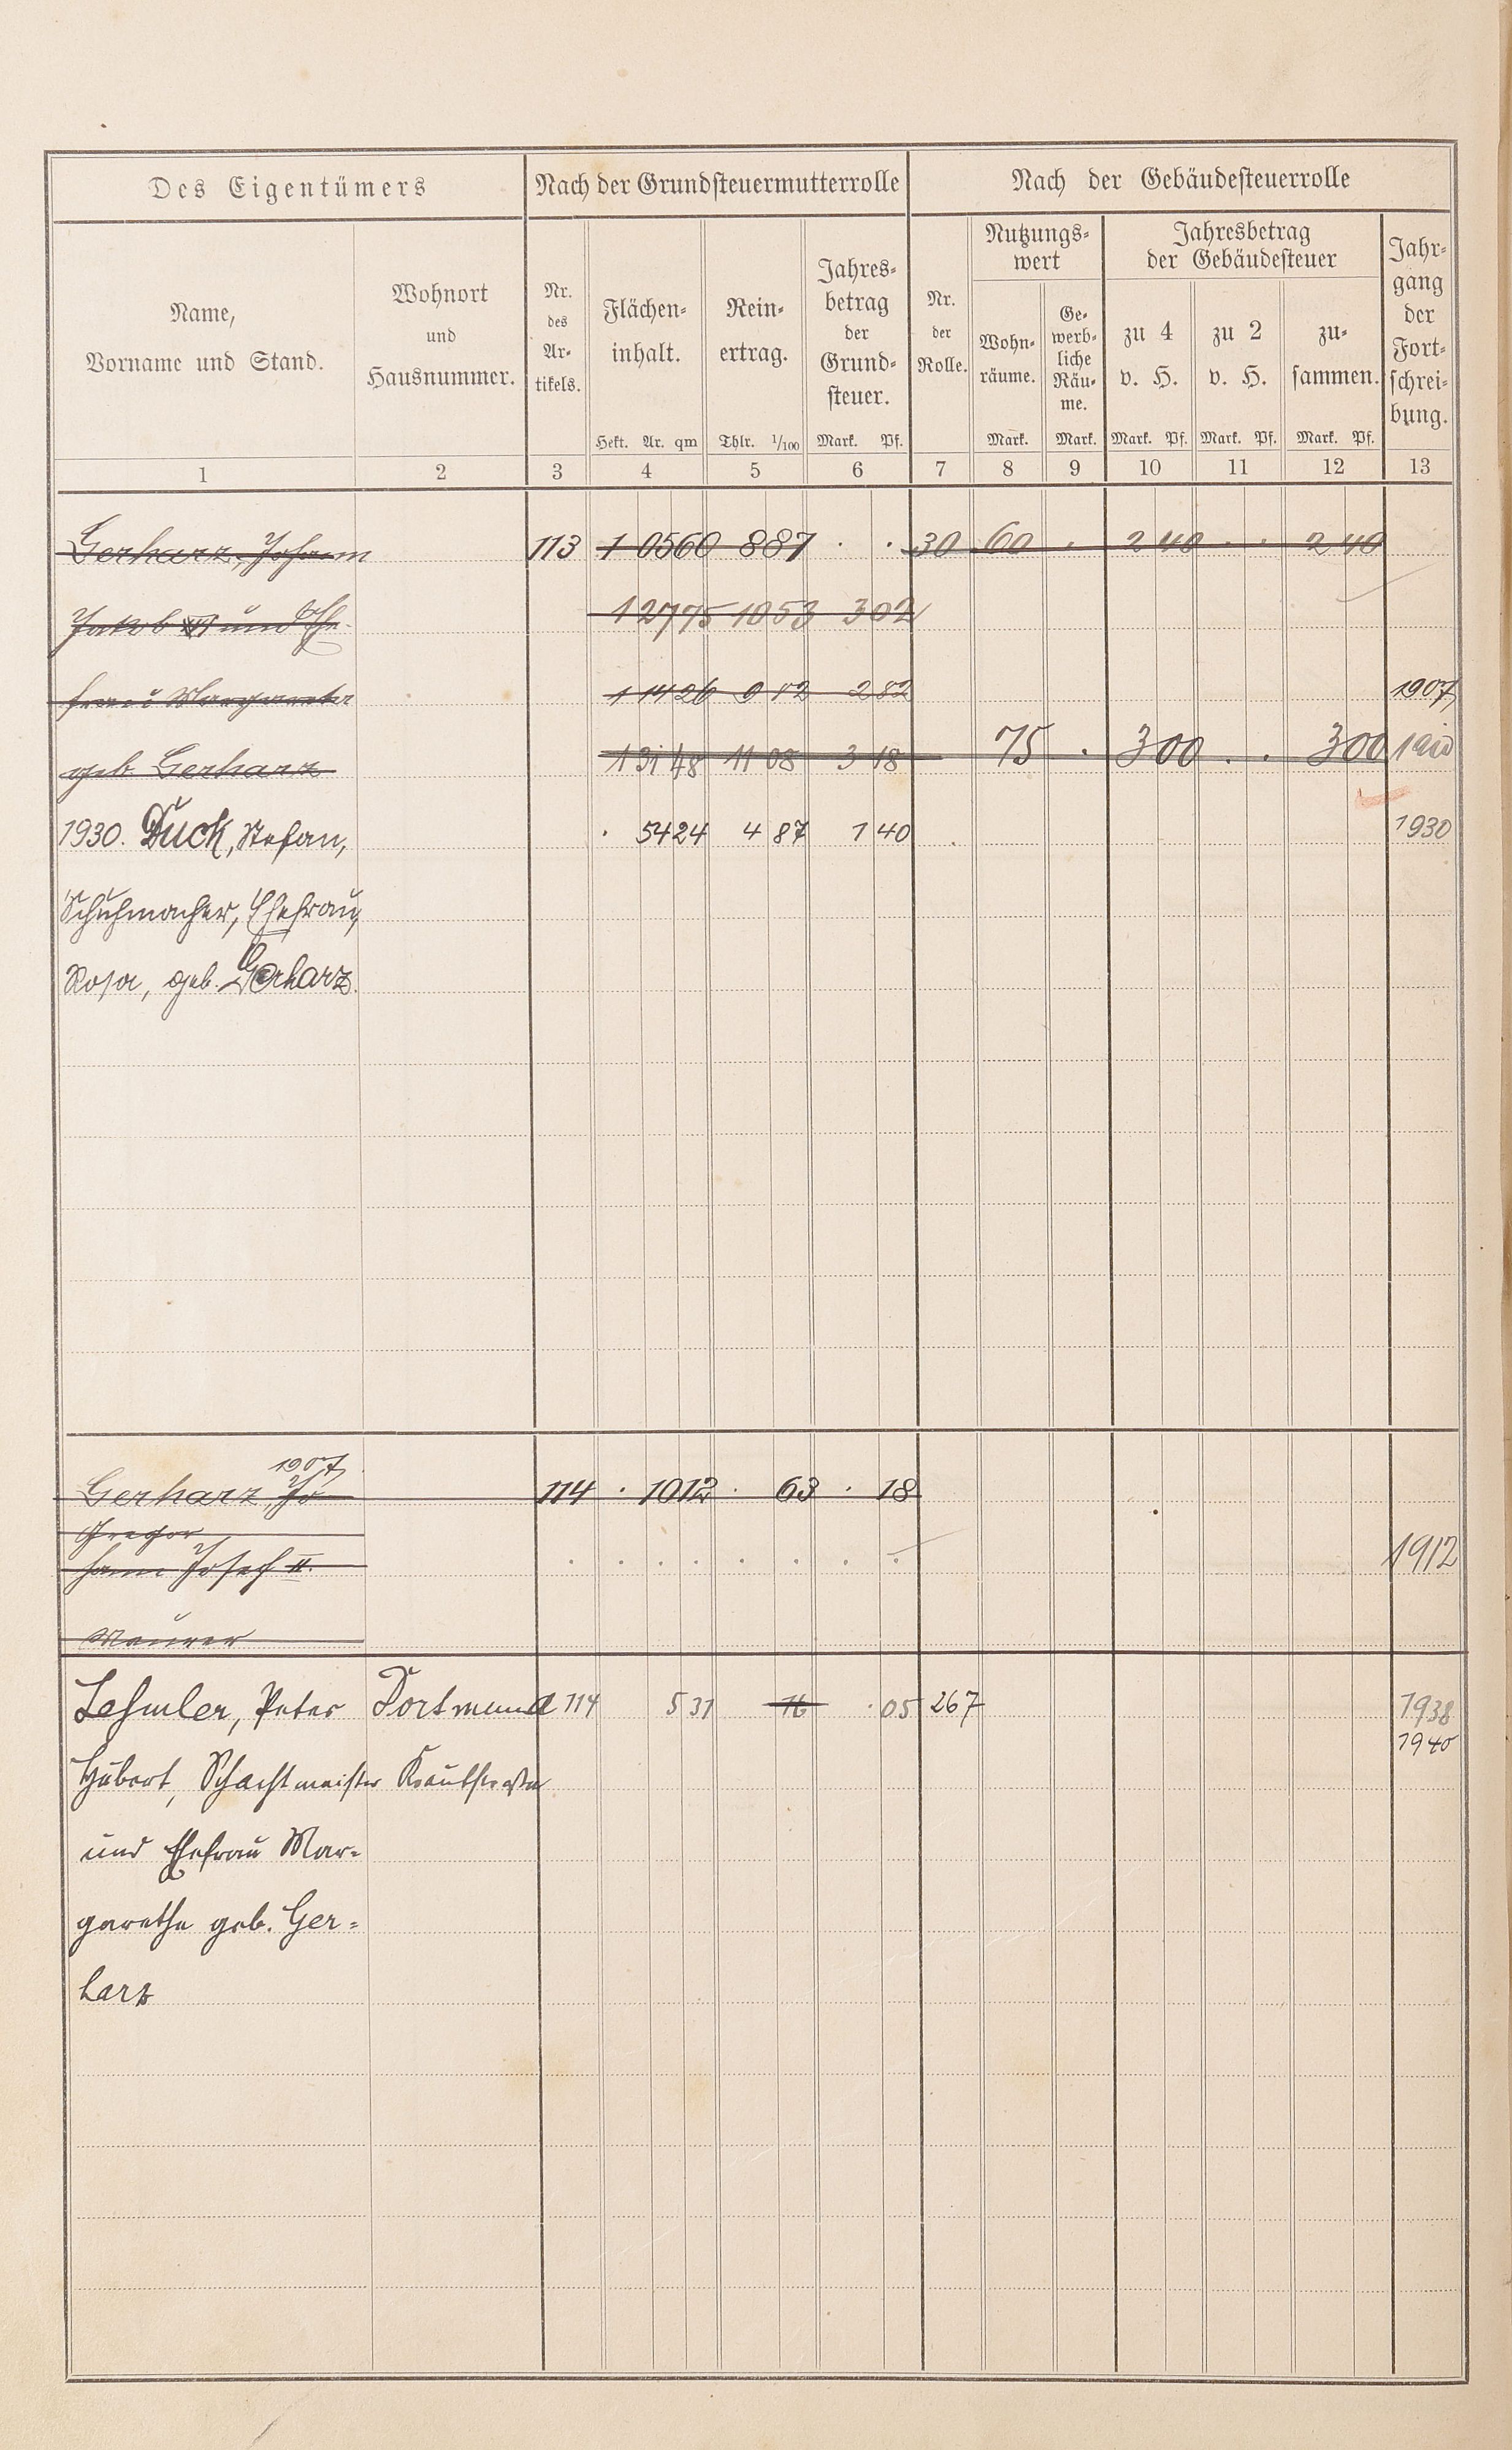 Des Eigentümers Nach der Grundsteuermutterrolle Nach der Gebäudesteuerrolle
Name, Vorname und Stand. Wohnort und Hausnummer. Nr. des Artikels. Flächeninhalt. Reinertrag. Jahresbetrag der Grundsteuer. Nr. der Rolle. Nutzungswert Wohnräume. Gewerbliche Räume. Jahresbetrag der Gebäudesteuer zu 4 v. H. zu 2 v. H. zusammen. Jahrgang der Fortschreibung.
Hekt. Ar. qm Thlr. 1/100 Mark. Pf. Mark. Mark. Mark. Pf. Mark. Pf. Mark. Pf.
1 2 3 4 5 6 7 8 9 10 11 12 13
Gerharz, Johann 113 1 05 60 8 87 . . 30 60 . 2 40 . . 2 40
Jakob und Ehe- 1 27 75 10 53 3 02
frau Margareta 1 14 26 9 82 2 82 1907
geb. Gerharz 1 31 48 11 08 3 18 75 . 3 00 . . 3 00
1930. Duck, Stefan, . 54 24 4 87 1 40 1930
Schuhmacher, Ehefrau,
Rosa, geb. Gerharz.
1907
Gerharz, Jo- 114 . 10 12 . 63 . 18
Gregor
hann Josef II. . . . . . . . . 1912
Maurer
Lehmler, Peter Dortmund 114 5 31 16 . 05 267 1938
1940
Hubert, Schachtmeister Krautstraße
und Ehefrau Mar-
garethe geb. Ger=
harz